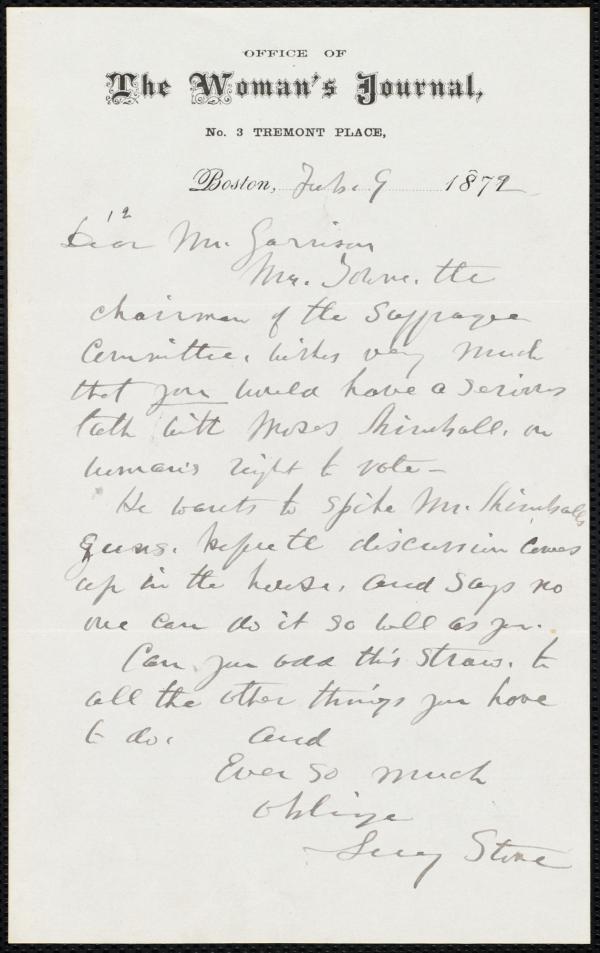 OFFICE OF
The Woman's Journal,
No. 3 TREMONT PLACE,
Boston, Feb. 9 1872
Dear Mr. Garrison
Mr. Towne, the
chairman of the Suffrage
Committee, wishes very much
that you would have a serious
talk with Moses Kimball, on
woman's right to vote —
He wants to spike Mr. Kimball's
guns, before the discussion comes
up in the house, and says no
one can do it so well as you.
Can you add this straw, to
all the other things you have
to do, and
Ever so much
oblige
Lucy Stone